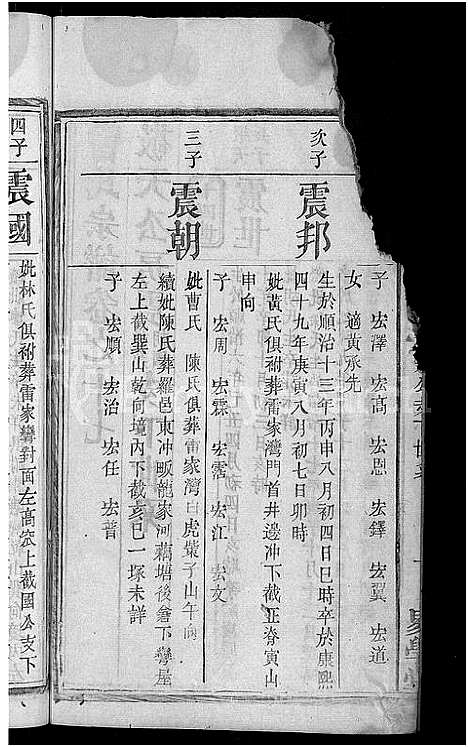 子 宏澤 宏高 宏恩 宏鐸 宏翼 宏道
女 適黃承先
次子
震邦
生於順治十三年丙申八月初四日巳時卒於康熙
四十九年庚寅八月初七日卯時
妣黃氏俱祔葬雷家灣門首井邊冲下截正脊寅山
申向
子 宏周 宏霖 宏霑 宏江 宏文
三子
震朝
妣曹氏 陳氏俱葬雷家灣白虎嘴子山午向
續妣陳氏葬羅邑東冲畈龍家河藕塘後倉下灣屋
左上截巽山乾向墳內下截亥巳一塚未詳
子 宏順 宏治 宏任 宏普
四子
震國
妣林氏俱祔葬雷家灣對面左高窊上截國公支下